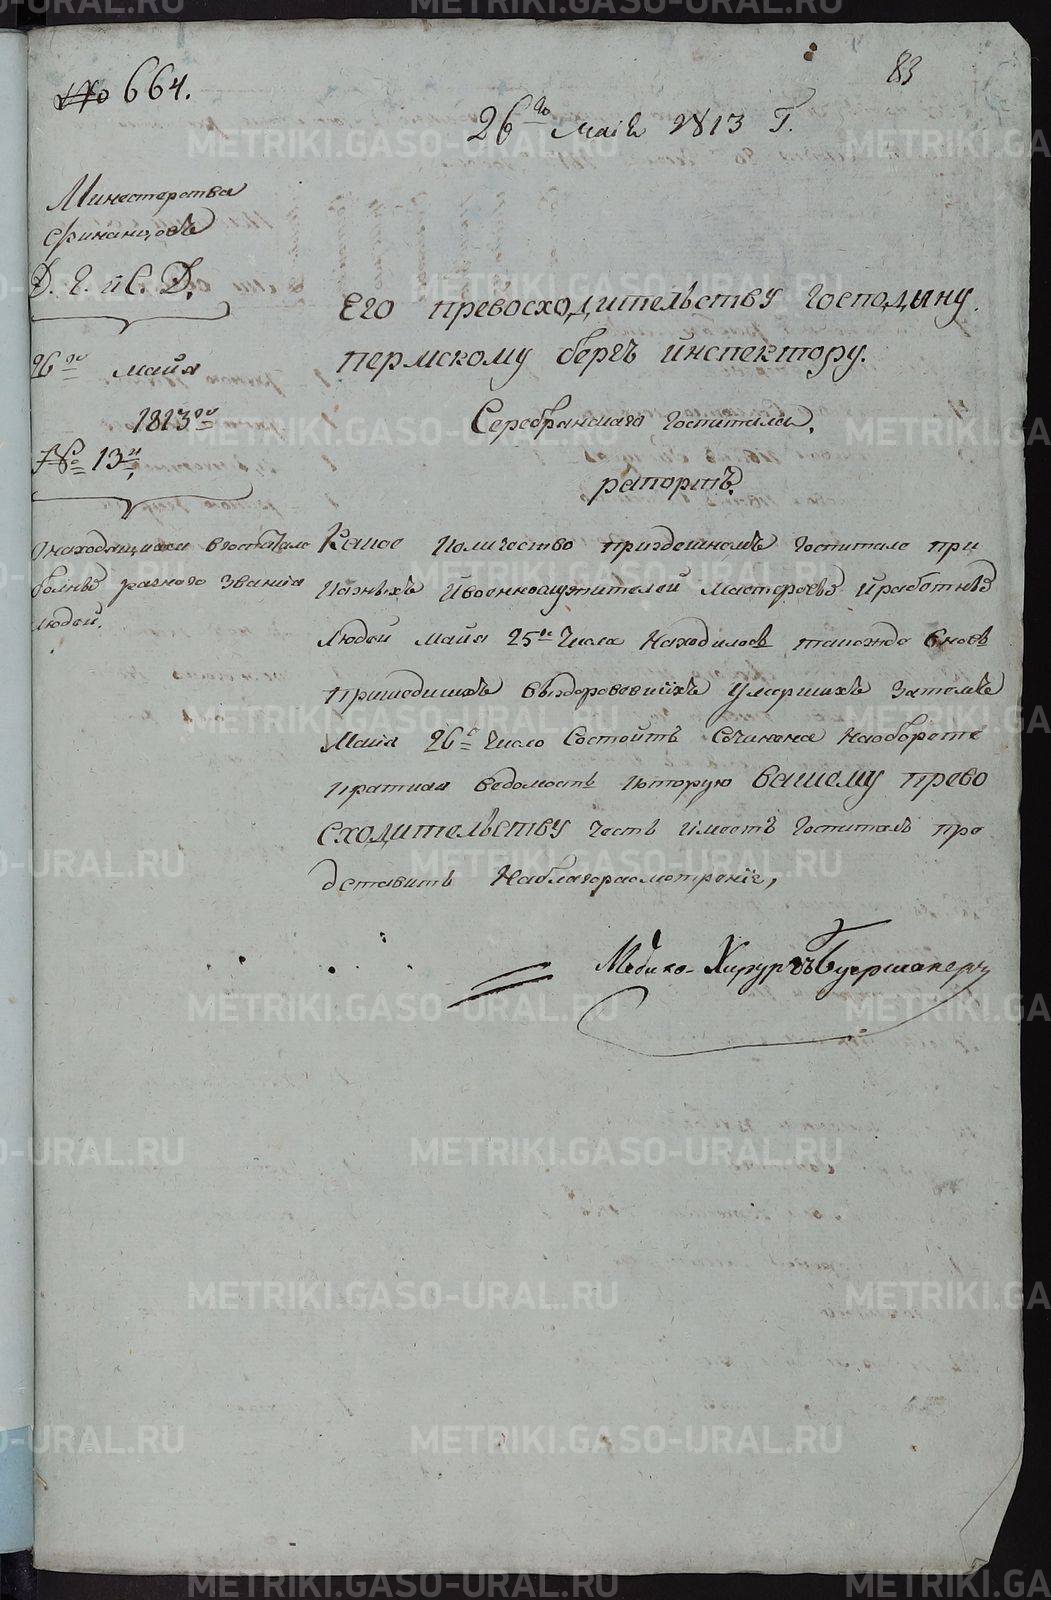 № 664.
83
26го Маія 1813 Г.
Министерства
Финанцовъ
Д. Г. и С. Д.
26го майя
1813го
№ 13й,
Онаходящихся вгоспитале
больныъ разного Звания
людей.
Его превосходительству Господину
пермскому бергъ инспектору.
Серебрянскаго госпиталя,
рапортъ.
Какое Количество приздешномъ госпитале при
Казныхъ Ивоеннослужителей Мастеровъ Иработныъ
Людей майя 25го Числа Находилось такожде вновь
Приходишихъ выздоровевшихъ Умершихъ Затемъ
Майя 26е Число Состоитъ Сочинена Наоборотѣ
Краткая ведомость Которую вашему прево
сходительству честь имеетъ Госпиталь пре
дставить Наблагоразмотреніе,
Медико-Хирургъ
METRIKI.GASO-URAL.RU